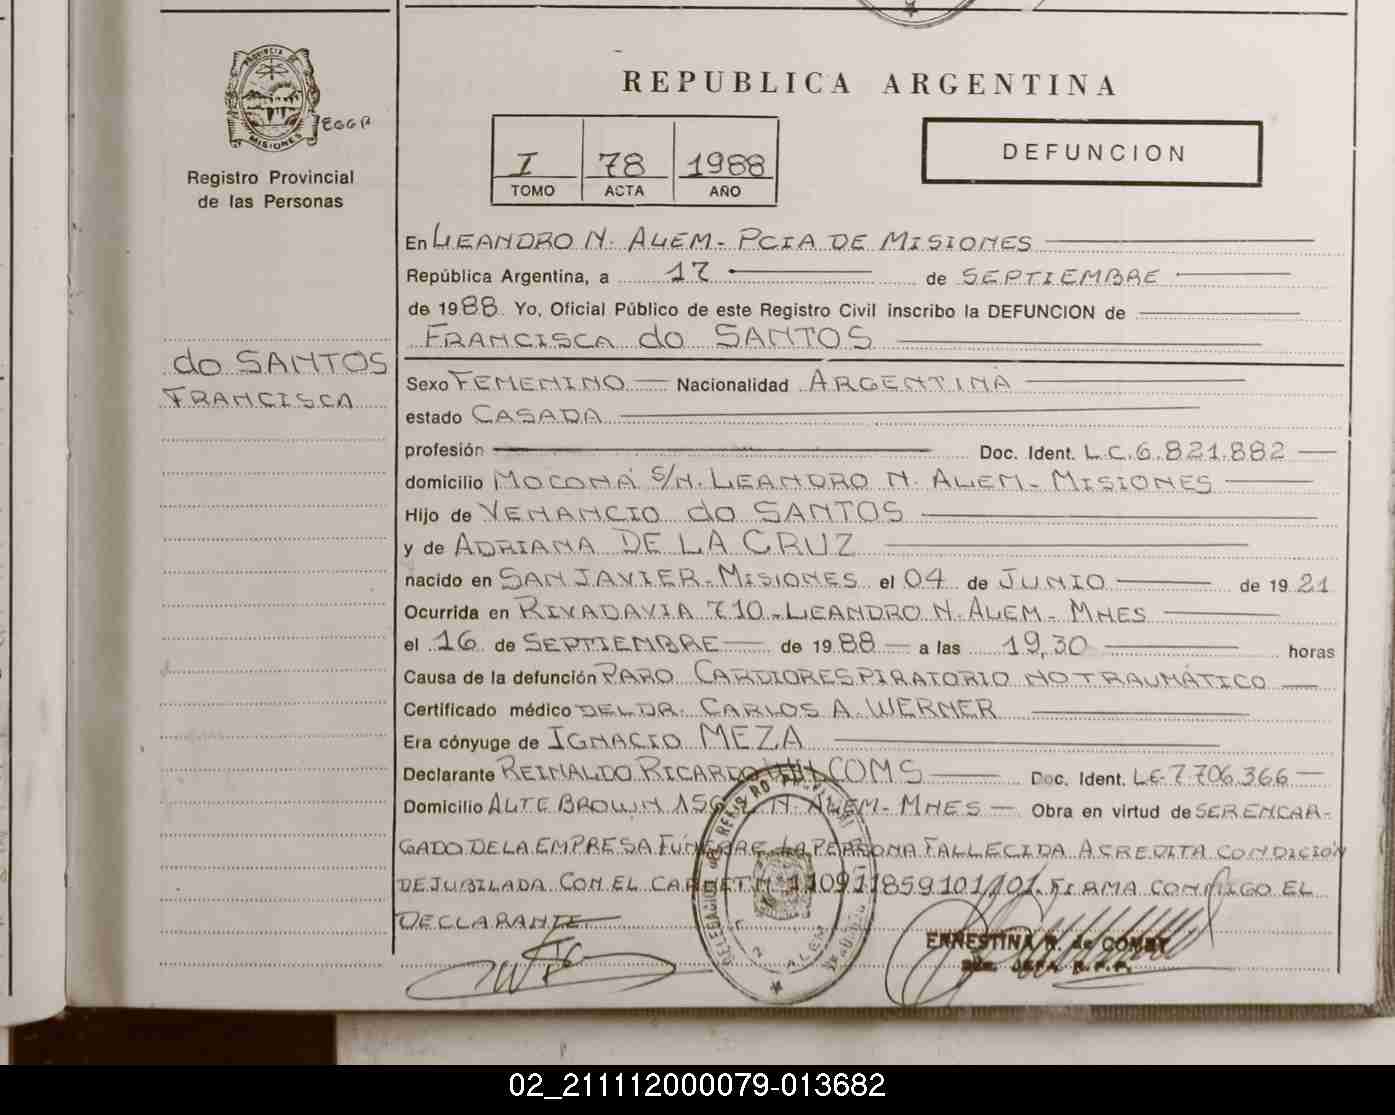 PROVINCIA DE
MISIONES
Registro Provincial
de las Personas
REPUBLICA ARGENTINA
I 78 1988
TOMO ACTA AÑO
DEFUNCION
do SANTOS
FRANCISCA
En LEANDRO N. ALEM - PCIA DE MISIONES
República Argentina, a 17 de SEPTIEMBRE
de 1988 Yo, Oficial Público de este Registro Civil inscribo la DEFUNCION de
FRANCISCA do SANTOS
Sexo FEMENINO Nacionalidad ARGENTINA
estado CASADA
profesión Doc. Ident. L.C. 6.821.882
domicilio MOCONÁ S/N. LEANDRO N. ALEM - MISIONES
Hijo de VENANCIO do SANTOS
y de ADRIANA DE LA CRUZ
nacido en SAN JAVIER - MISIONES el 04 de JUNIO de 1921
Ocurrida en RIVADAVIA 710 - LEANDRO N. ALEM - MNES
el 16 de SEPTIEMBRE de 1988 a las 19,30 horas
Causa de la defunción PARO CARDIORESPIRATORIO NO TRAUMÁTICO
Certificado médico DEL DR. CARLOS A. WERNER
Era cónyuge de IGNACIO MEZA
Declarante REINALDO RICARDO Doc. Ident. L.E. 7.706.366
Domicilio ALTE BROWN N. ALEM - MNES Obra en virtud de SER ENCAR-
GADO DE LA EMPRESA FÚNEBRE. LA PERSONA FALLECIDA ACREDITA CONDICIÓN
DE JUBILADA CON EL CARNET N FIRMA CONMIGO EL
DECLARANTE
ERNESTINA R. de
JEFA R.P.P.
02_211112000079-013682